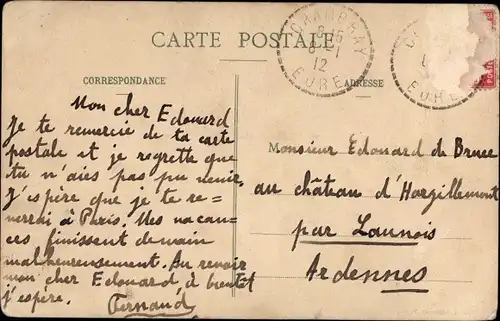 CARTE POSTALE
CHAMBRAY
8-1
12
EURE
EURE
CORRESPONDANCE
ADRESSE
Mon cher Edouard
Je te remercie de ta carte
postale et je regrette que
tu n'aies pas pu venir.
J'espère que je te re=
verrai à Paris. Mes vacan=
ces finissent demain
malheureusement. Au revoir
mon cher Edouard, à bientôt
j'espère.
Fernand
Monsieur Edouard de Bruce
au château d'Hargillemont
par Launois
Ardennes